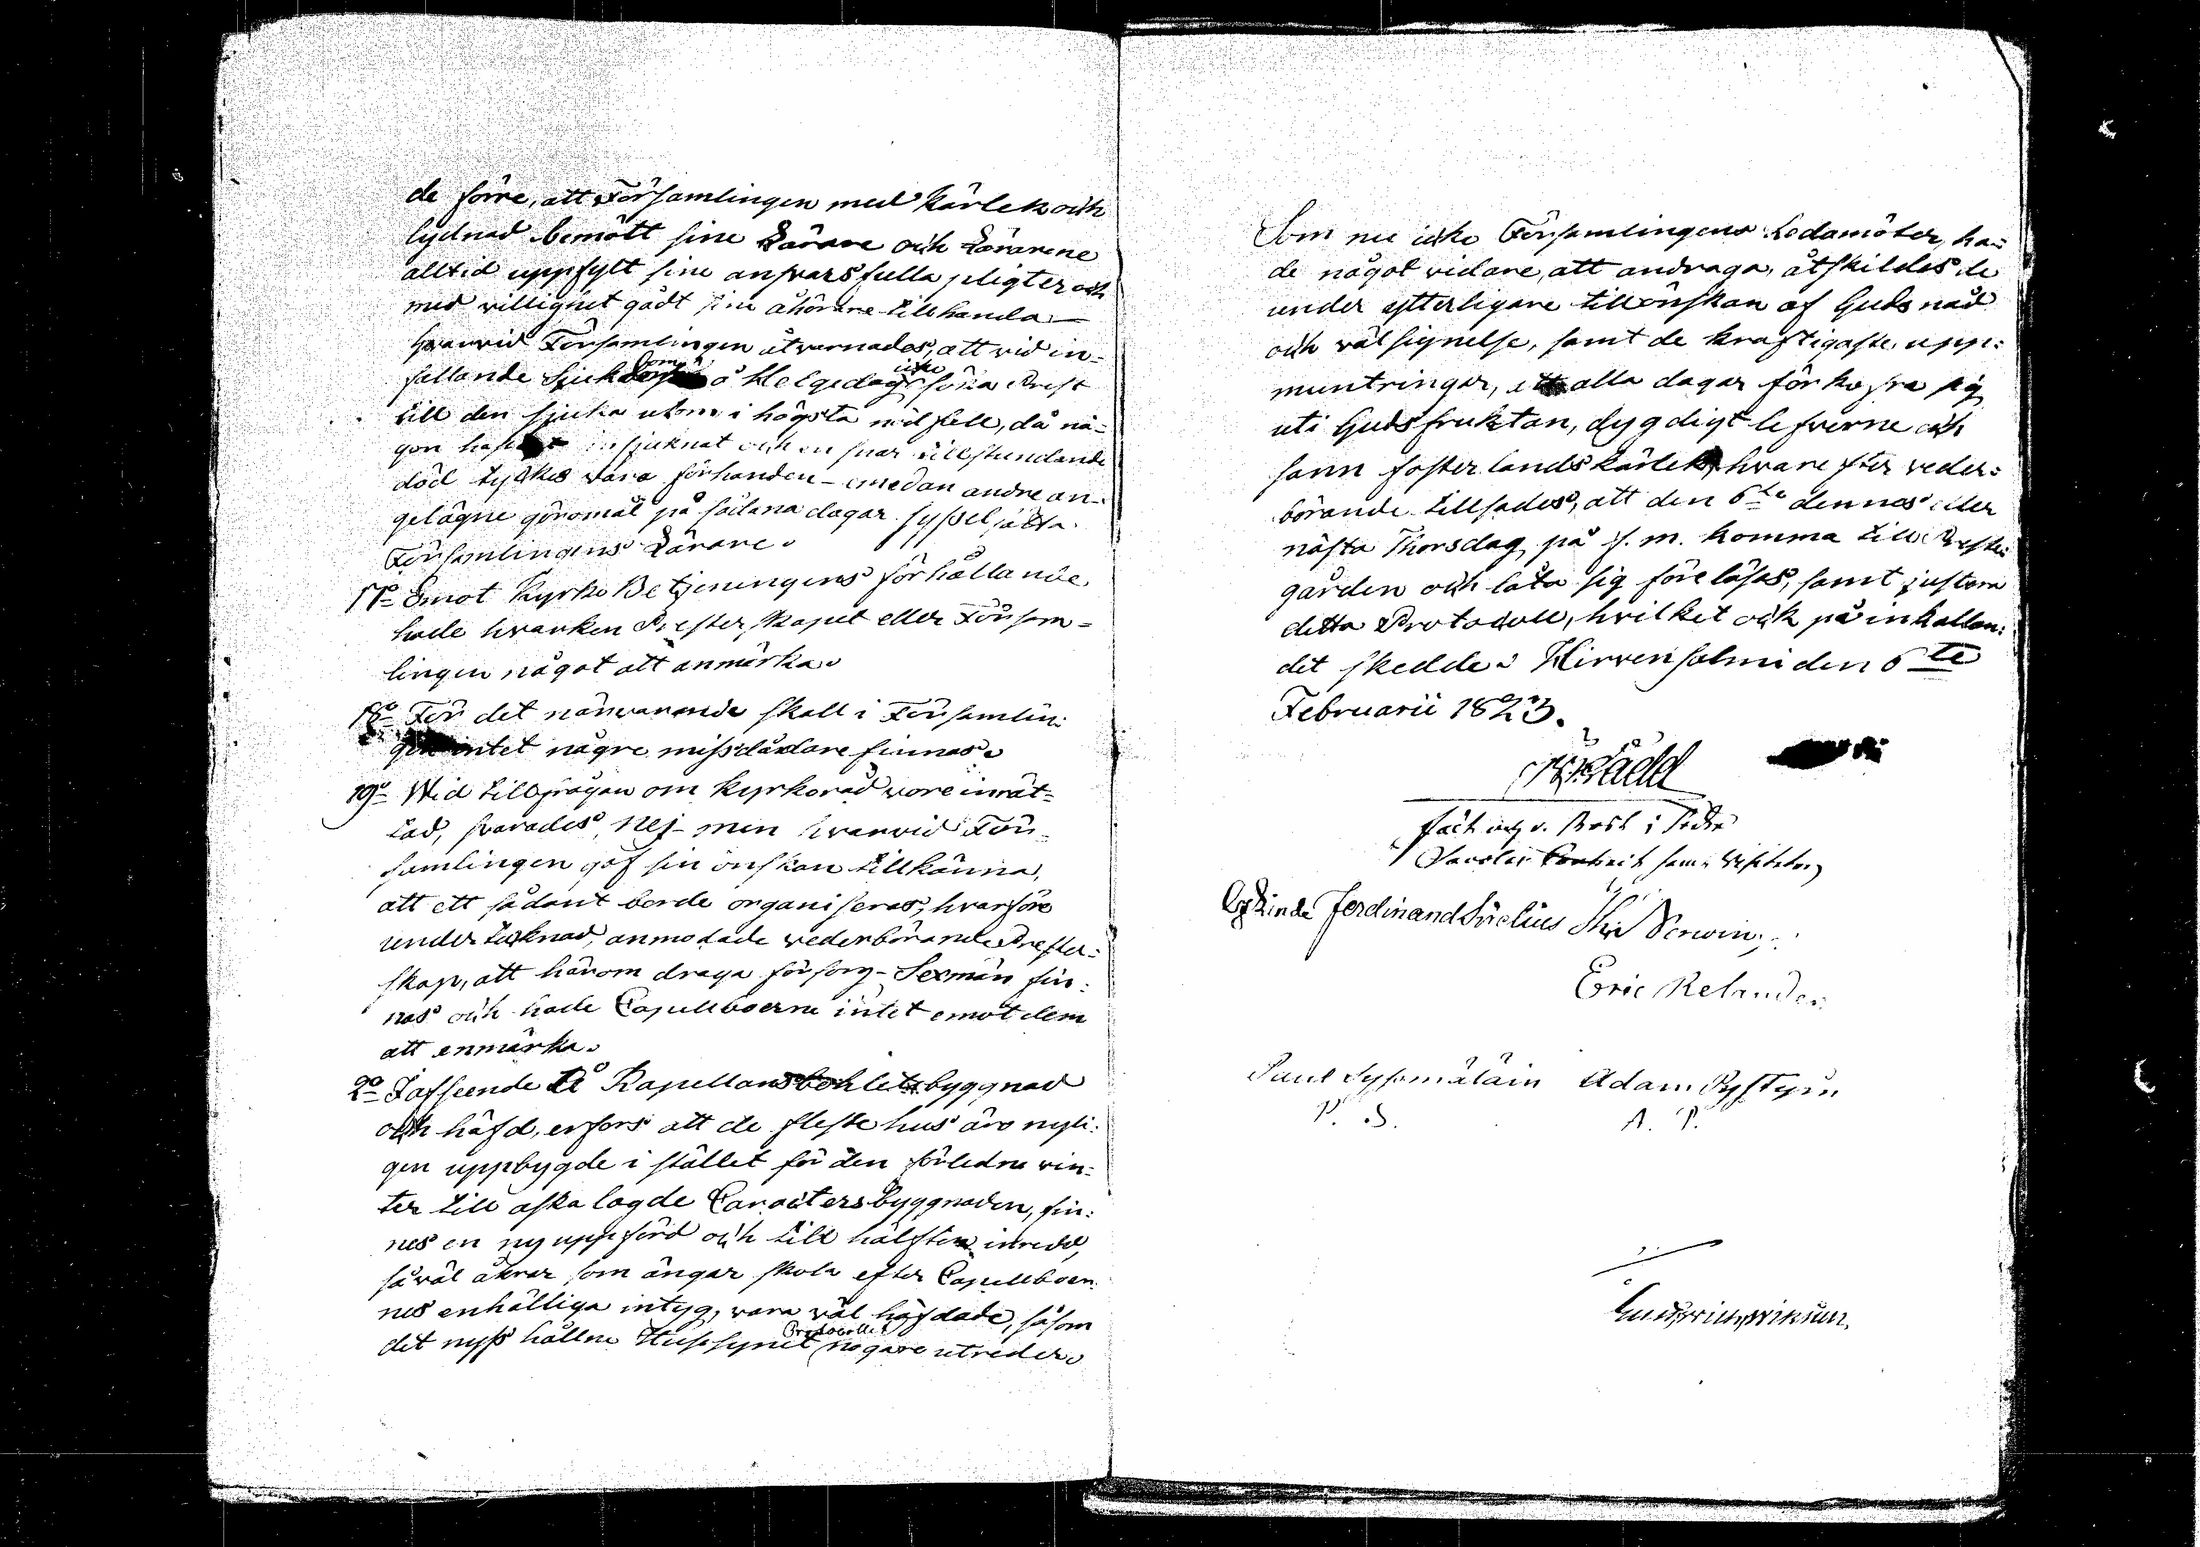 de förre, att Församlingen med kärlek och
lydnad bemött sine Lärare och Lärarene
alltid uppfylt sine ansvarsfulla pligter och
med villighet gådt sine åhörare tillhanda —
hvarvid Församlingen åtvarnades, att vid in-
fallande Sjukdom å Helgedag icke söka Prest
till den sjuka utom i högsta nödfall, då nå-
gon hastigt insjuknat och en snar tillstundande
död tyckes vara förhanden - emedan andre an-
gelägne göromål på sådana dagar sysselsätta
Församlingens Lärare.
17o Emot Kyrko Betjeningens förhållande
hade hvarken Presterskapet eller Försam-
lingen något att anmärka.
18o För det närvarande skall i Församlin:
gen intet någre missdådare finnas.
19o Wid tillfrågan om kyrkoråd vore inrät-
tad, svarades, Nej - men hvarvid För-
samlingen gaf sin önskan tillkänna,
att ett sådant borde organiseras, hvarföre
undertecknad, anmodade vederbörande Prester-
skap, att härom draga försorg - Sexmän fin:
nas och hade Capellboerne intet emot dem
att enmärka.
20 I afseende å Kapellans bohlets byggnad
och häfd, erfors att de fleste hus äro nyli:
gen uppbygde i stället för den förledne vin:
ter till aska lagde Caractersbyggnaden, fin:
nes en ny uppförd och till hälften inredd,
såväl åkrar som ängar skola efter Capellboer-
nes enhälliga intyg, vara väl häfdade, såsom
det nyss hållne Hussynet Protocollet nogare utreder.
Som nu icke Församlingens Ledamöter, ha:
de något vidare, att andraga, åtskildes de
under ytterligare tillönskan af Guds nåd
och välsignelse, samt de kraftigaste upp:
muntringar, att alla dagar förkofra sig
uti Gudsfruktan, dygdigt lefverne och
sann fosterlandskärlek, hvarefter veder:
börande tillsades, att den 6te dennes eller
nästa Thorsdag på f. m. komma till Preste:
gården och låta sig föreläsas, samt justera
detta Protocoll, hvilket ock på inkallan:
det skedde. Hirvensalmi den 6te
Februarii 1823.
Ferdinand
Eric Relander
Paul Adam
P. S. A. P.